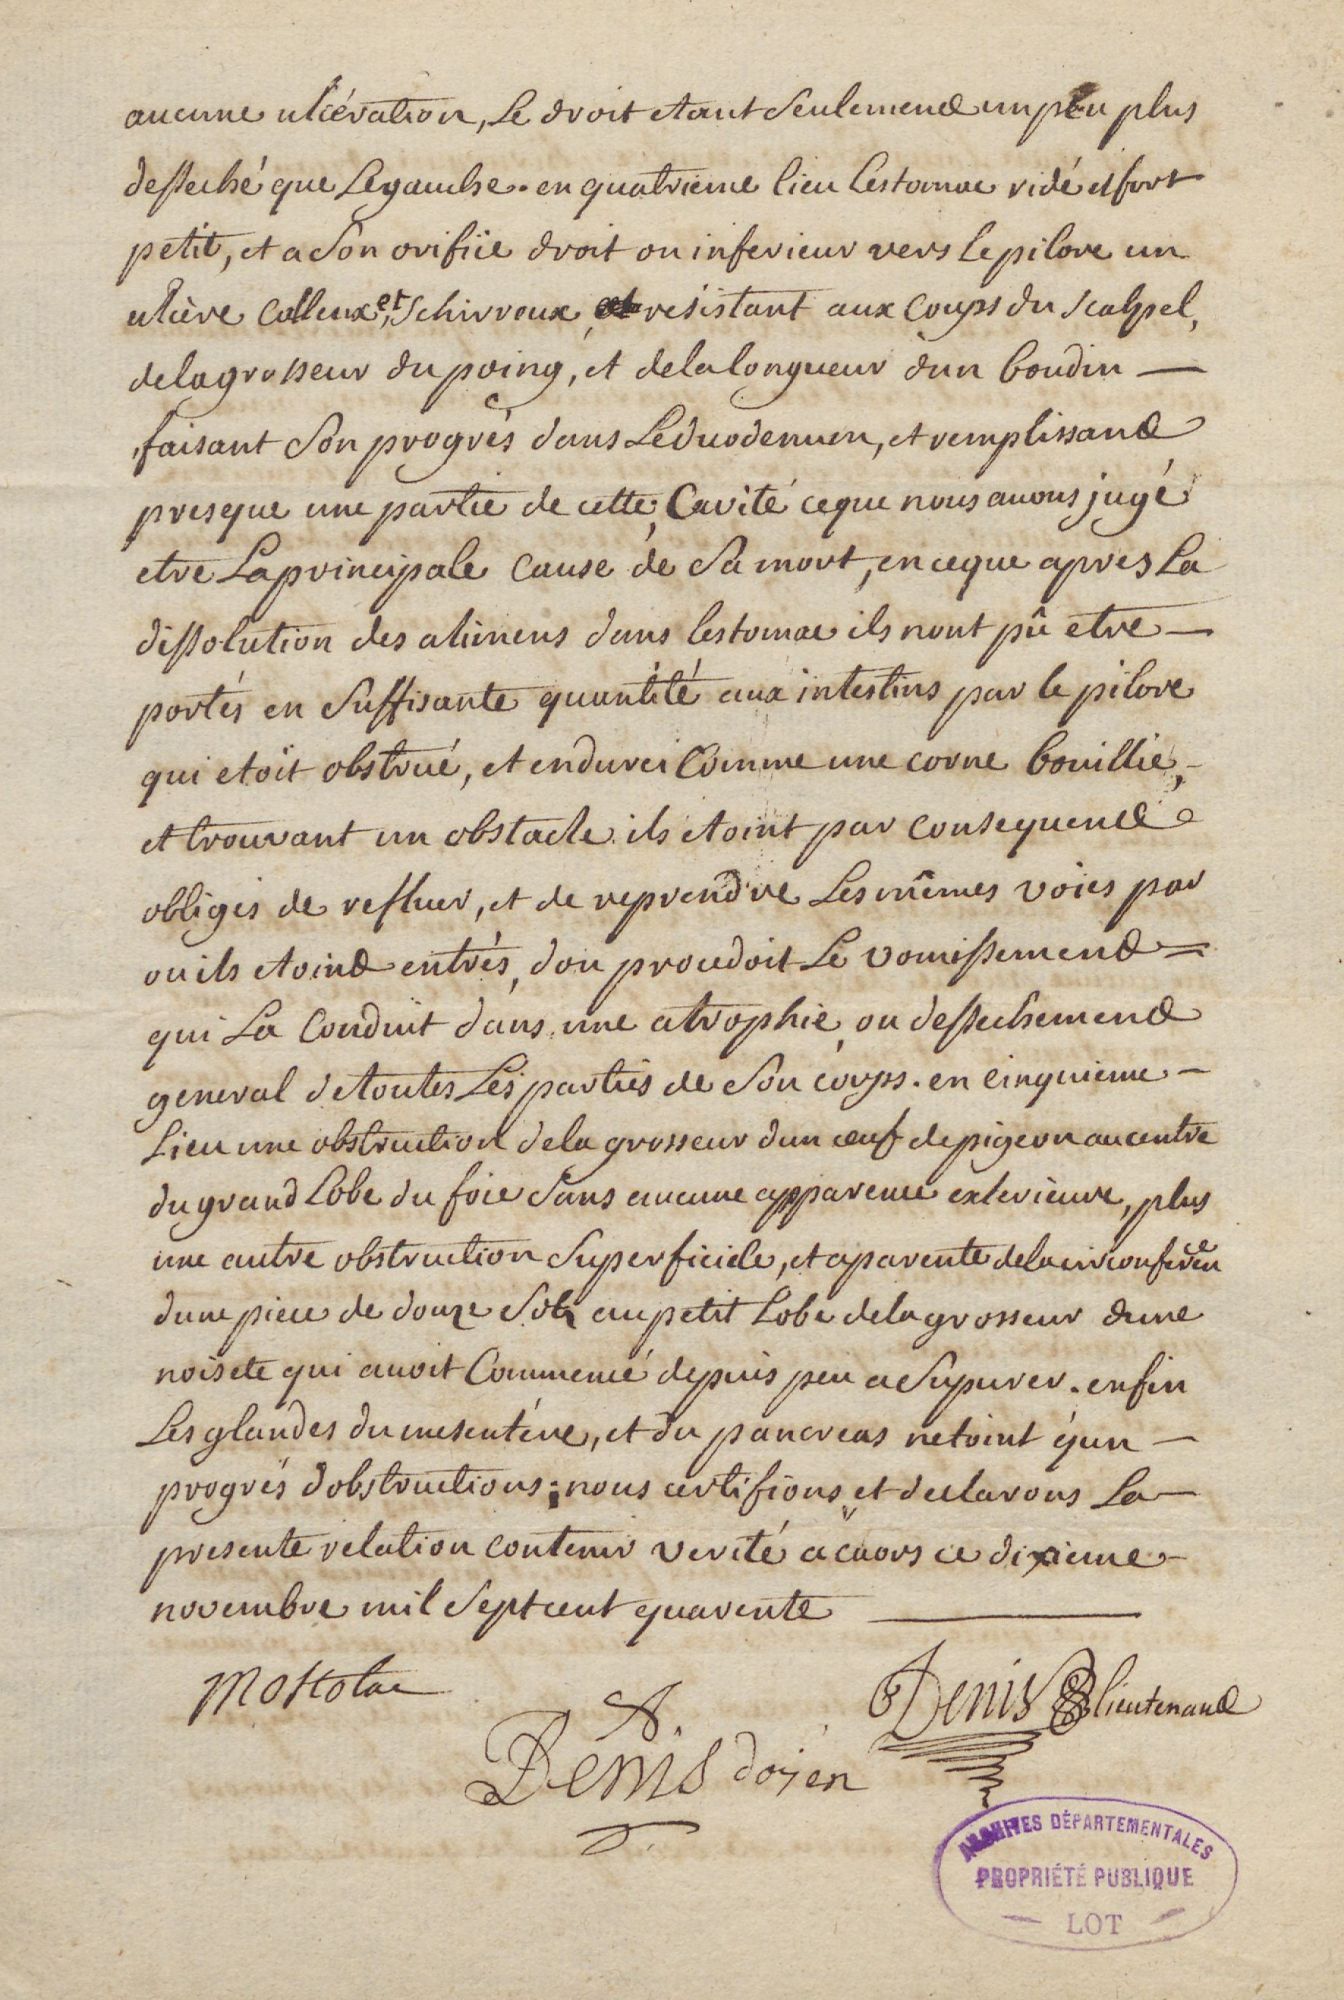 aucune ulcération, Le droit etant Seulement un peu plus
desseché que Le gauche. en quatrieme lieu Lestomac ridé et fort
petit, et a Son orifice droit ou inferieur vers Le pilore un
ulcère Calleux et, Schirreux, resistant aux Coups du Scalpel,
de la grosseur du poing, et de la longueur dun boudin —
faisant Son progrès dans Le duodenum, et remplissant
presque une partie de cette Cavité ce que nous avons jugé
etre La principale Cause de Sa mort, en ce que apres La
dissolution des alimens dans Lestomac ils nont pû etre —
portés en Suffisante quantité aux intestins par le pilore
qui etoit obstrué, et endurci Comme une corne bouillie, -
et trouvant un obstacle ils etoint par consequent
obligés de refluer, et de reprendre Les mêmes voies par
ou ils etoint entrés, dou procedoit Le vomissement =
qui La Conduit dans une atrophie ou dessechement
general de toutes Les parties de Son corps. en cinquieme —
Lieu une obstruction de la grosseur dun œuf de pigeon au centre
du grand Lobe du foie Sans aucune apparence exterieure, plus
une autre obstruction Superficiele, et aparente de la circonference
dune piece de douze Sols au petit Lobe de la grosseur dune
noisete qui avoit Commencé depuis peu a Supurer. enfin
Les glandes du mesentére, et du pancreas netoint qun —
progrés dobstructions; nous certifions et declarons La —
presente relation contenir verité a caors ce dixieme —
novembre mil Sept cent quarente ———
Denis lieutenant
Denis doyen
ARCHIVES DÉPARTEMENTALES
PROPRIÉTÉ PUBLIQUE
— LOT —